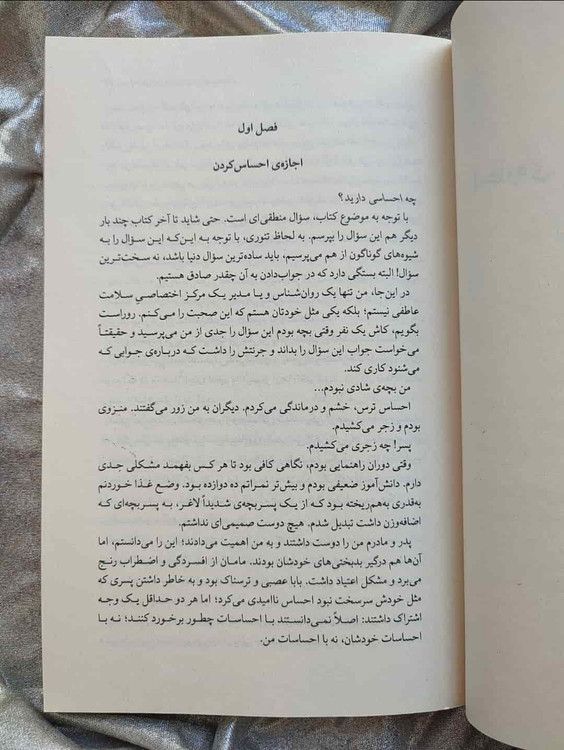 فصل اول
اجازه‌ی احساس‌کردن
چه احساسی دارید؟
با توجه به موضوع کتاب، سؤال منطقی‌ای است. حتی شاید تا آخر کتاب چند بار
دیگر هم این سؤال را بپرسم. به لحاظ تئوری، با توجه به این‌که این سؤال را به
شیوه‌های گوناگون از هم می‌پرسیم، باید ساده‌ترین سؤال دنیا باشد، نه سخت‌ترین
سؤال! البته بستگی دارد که در جواب‌دادن به آن چقدر صادق هستیم.
در این‌جا، من تنها یک روان‌شناس و یا مدیر یک مرکز اختصاصیِ سلامت
عاطفی نیستم؛ بلکه یکی مثل خودتان هستم که این صحبت را می‌کنم. روراست
بگویم، کاش یک نفر وقتی بچه بودم این سؤال را جدی از من می‌پرسید و حقیقتاً
می‌خواست جواب این سؤال را بداند و جرئتش را داشت که درباره‌ی جوابی که
می‌شنود کاری کند.
من بچه‌ی شادی نبودم...
احساس ترس، خشم و درماندگی می‌کردم. دیگران به من زور می‌گفتند. منزوی
بودم و زجر می‌کشیدم.
پسر! چه زجری می‌کشیدم.
وقتی دوران راهنمایی بودم، نگاهی کافی بود تا هر کس بفهمد مشکلی جدی
دارم. دانش‌آموز ضعیفی بودم و بیش‌تر نمراتم ده دوازده بود. وضع غذا خوردنم
به‌قدری به‌هم‌ریخته بود که از یک پسربچه‌ی شدیداً لاغر، به پسربچه‌ای که
اضافه‌وزن داشت تبدیل شدم. هیچ دوست صمیمی‌ای نداشتم.
پدر و مادرم من را دوست داشتند و به من اهمیت می‌دادند؛ این را می‌دانستم، اما
آن‌ها هم درگیر بدبختی‌های خودشان بودند. مامان از افسردگی و اضطراب رنج
می‌برد و مشکل اعتیاد داشت. بابا عصبی و ترسناک بود و به خاطر داشتن پسری که
مثل خودش سرسخت نبود احساس ناامیدی می‌کرد؛ اما هر دو حداقل یک وجه
اشتراک داشتند: اصلاً نمی‌دانستند با احساسات چطور برخورد کنند؛ نه با
احساسات خودشان، نه با احساسات من.